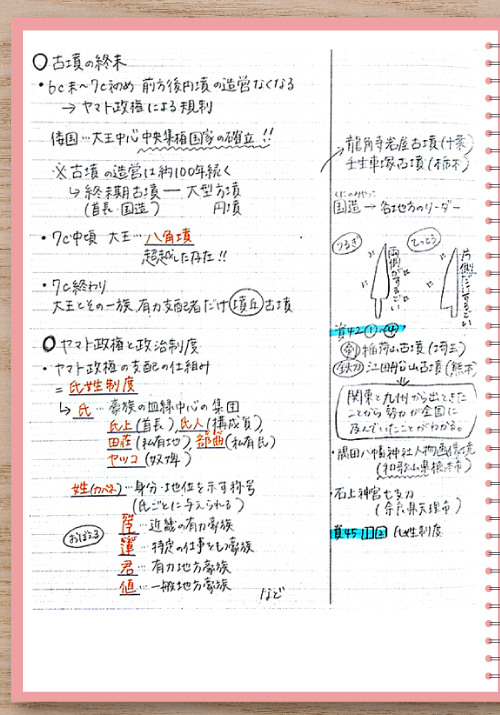 ○古墳の終末
・6c末〜7c初め 前方後円墳の造営なくなる
→ ヤマト政権による規制
倭国…大王中心 中央集権国家の確立!!
※古墳の造営は約100年続く
↳ 終末期古墳 ― 大型方墳
(首長・国造) 円墳
・7c中頃 大王…八角墳
超越した存在!!
・7c終わり
大王とその一族、有力支配者だけ墳丘古墳
○ヤマト政権と政治制度
・ヤマト政権の支配の仕組み
= 氏姓制度
↳ 氏…豪族の血縁中心の集団
氏上(首長)、氏人(構成員)、
田荘(私有地)、部曲(私有民)
ヤツコ(奴婢)
姓(カバネ)…身分・地位を示す称号
(氏ごとに与えられる)
おぼえる
臣…近畿の有力豪族
連…特定の仕事をもつ豪族
君…有力地方豪族
値…一般地方豪族
など
龍角寺岩屋古墳(千葉)
壬生車塚古墳(栃木)
くにのみやつこ
国造 → 各地方のリーダー
つるぎ
両側がするどい
てっとう
片側だけするどい
資42①〜④
剣 稲荷山古墳(埼玉)
鉄刀 江田船山古墳(熊本)
関東と九州から出てきた
ことから勢力が全国に
及んでいたことがわかる。
・隅田八幡神社人物画像鏡
(和歌山県橋本市)
・石上神宮七支刀
(奈良県天理市)
資45 11 2 氏姓制度